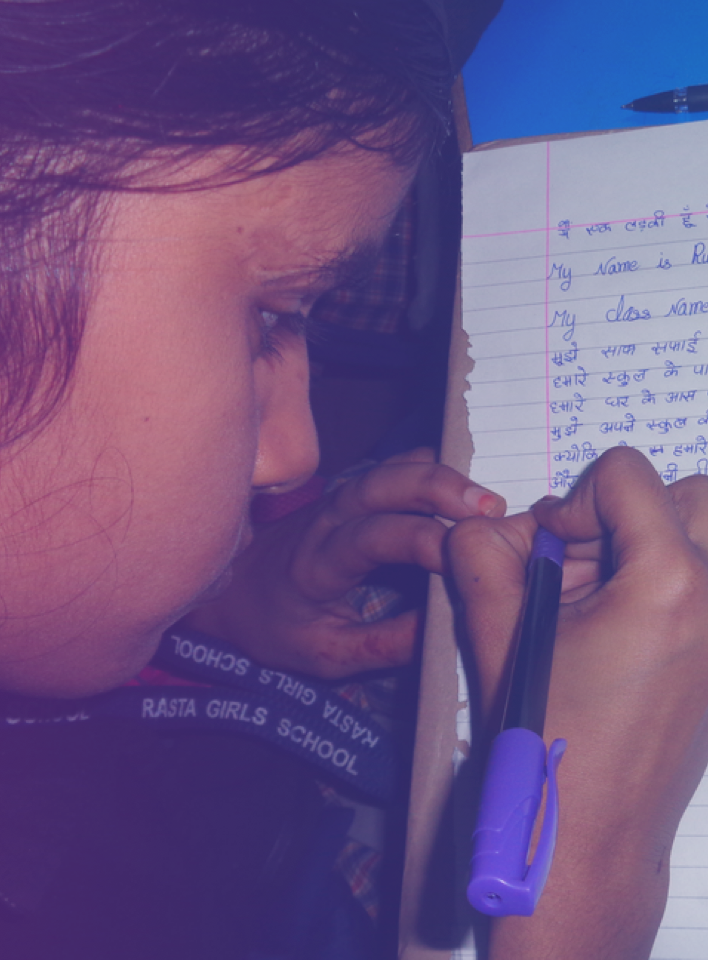 मैं एक लड़की हूँ
My Name is Ru
My class Name
मुझे साफ सफाई
हमारे स्कूल के पा
हमारे घर के आस
मुझे अपने स्कूल
क्योकि हमारे
और
RASTA GIRLS SCHOOL
RASTA GIRLS SCHOOL